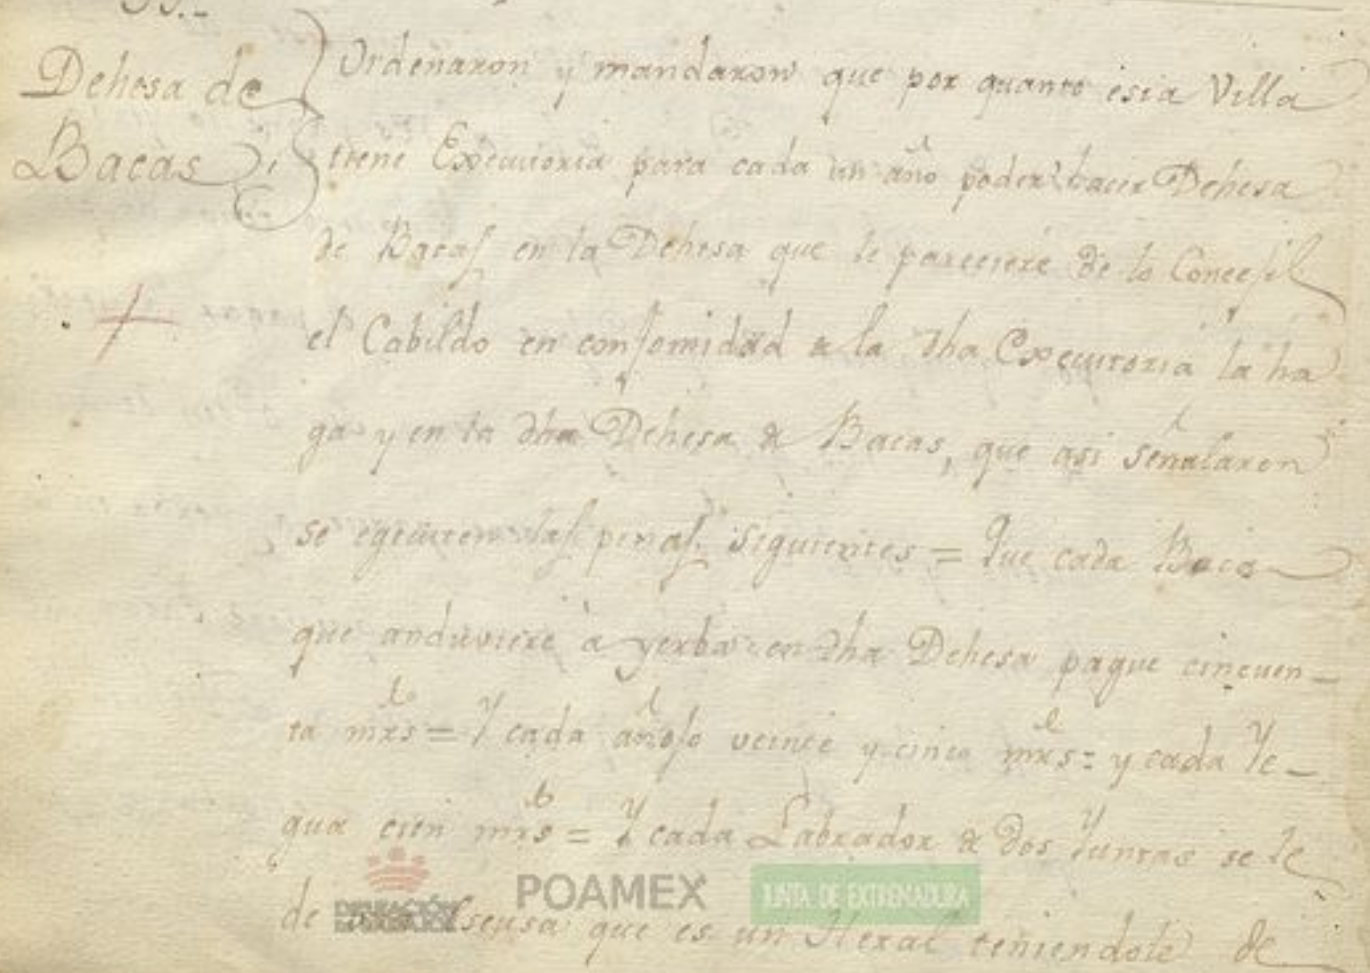 Dehesa de
Bacas
Ordenaron y mandaron que por quanto esta Villa
tiene Executoria para cada un año poder hacer Dehesa
de Bacas en la Dehesa que le pareciere de lo Concejil
el Cabildo en confomidad a la dha Executoria la ha
ga y en la dha Dehesa de Bacas, que asi señalaren
se egecuten las penas siguientes = Que cada Baca
que anduviere à yerba en dha Dehesa pague cincuen-
ta mrs = Y cada añojo veinte y cinco mrs = y cada Ye-
gua cien mrs = Y cada Labrador de dos Yuntas se le
de que es un teniendole de
DIPUTACIÓN
POAMEX
JUNTA DE EXTREMADURA